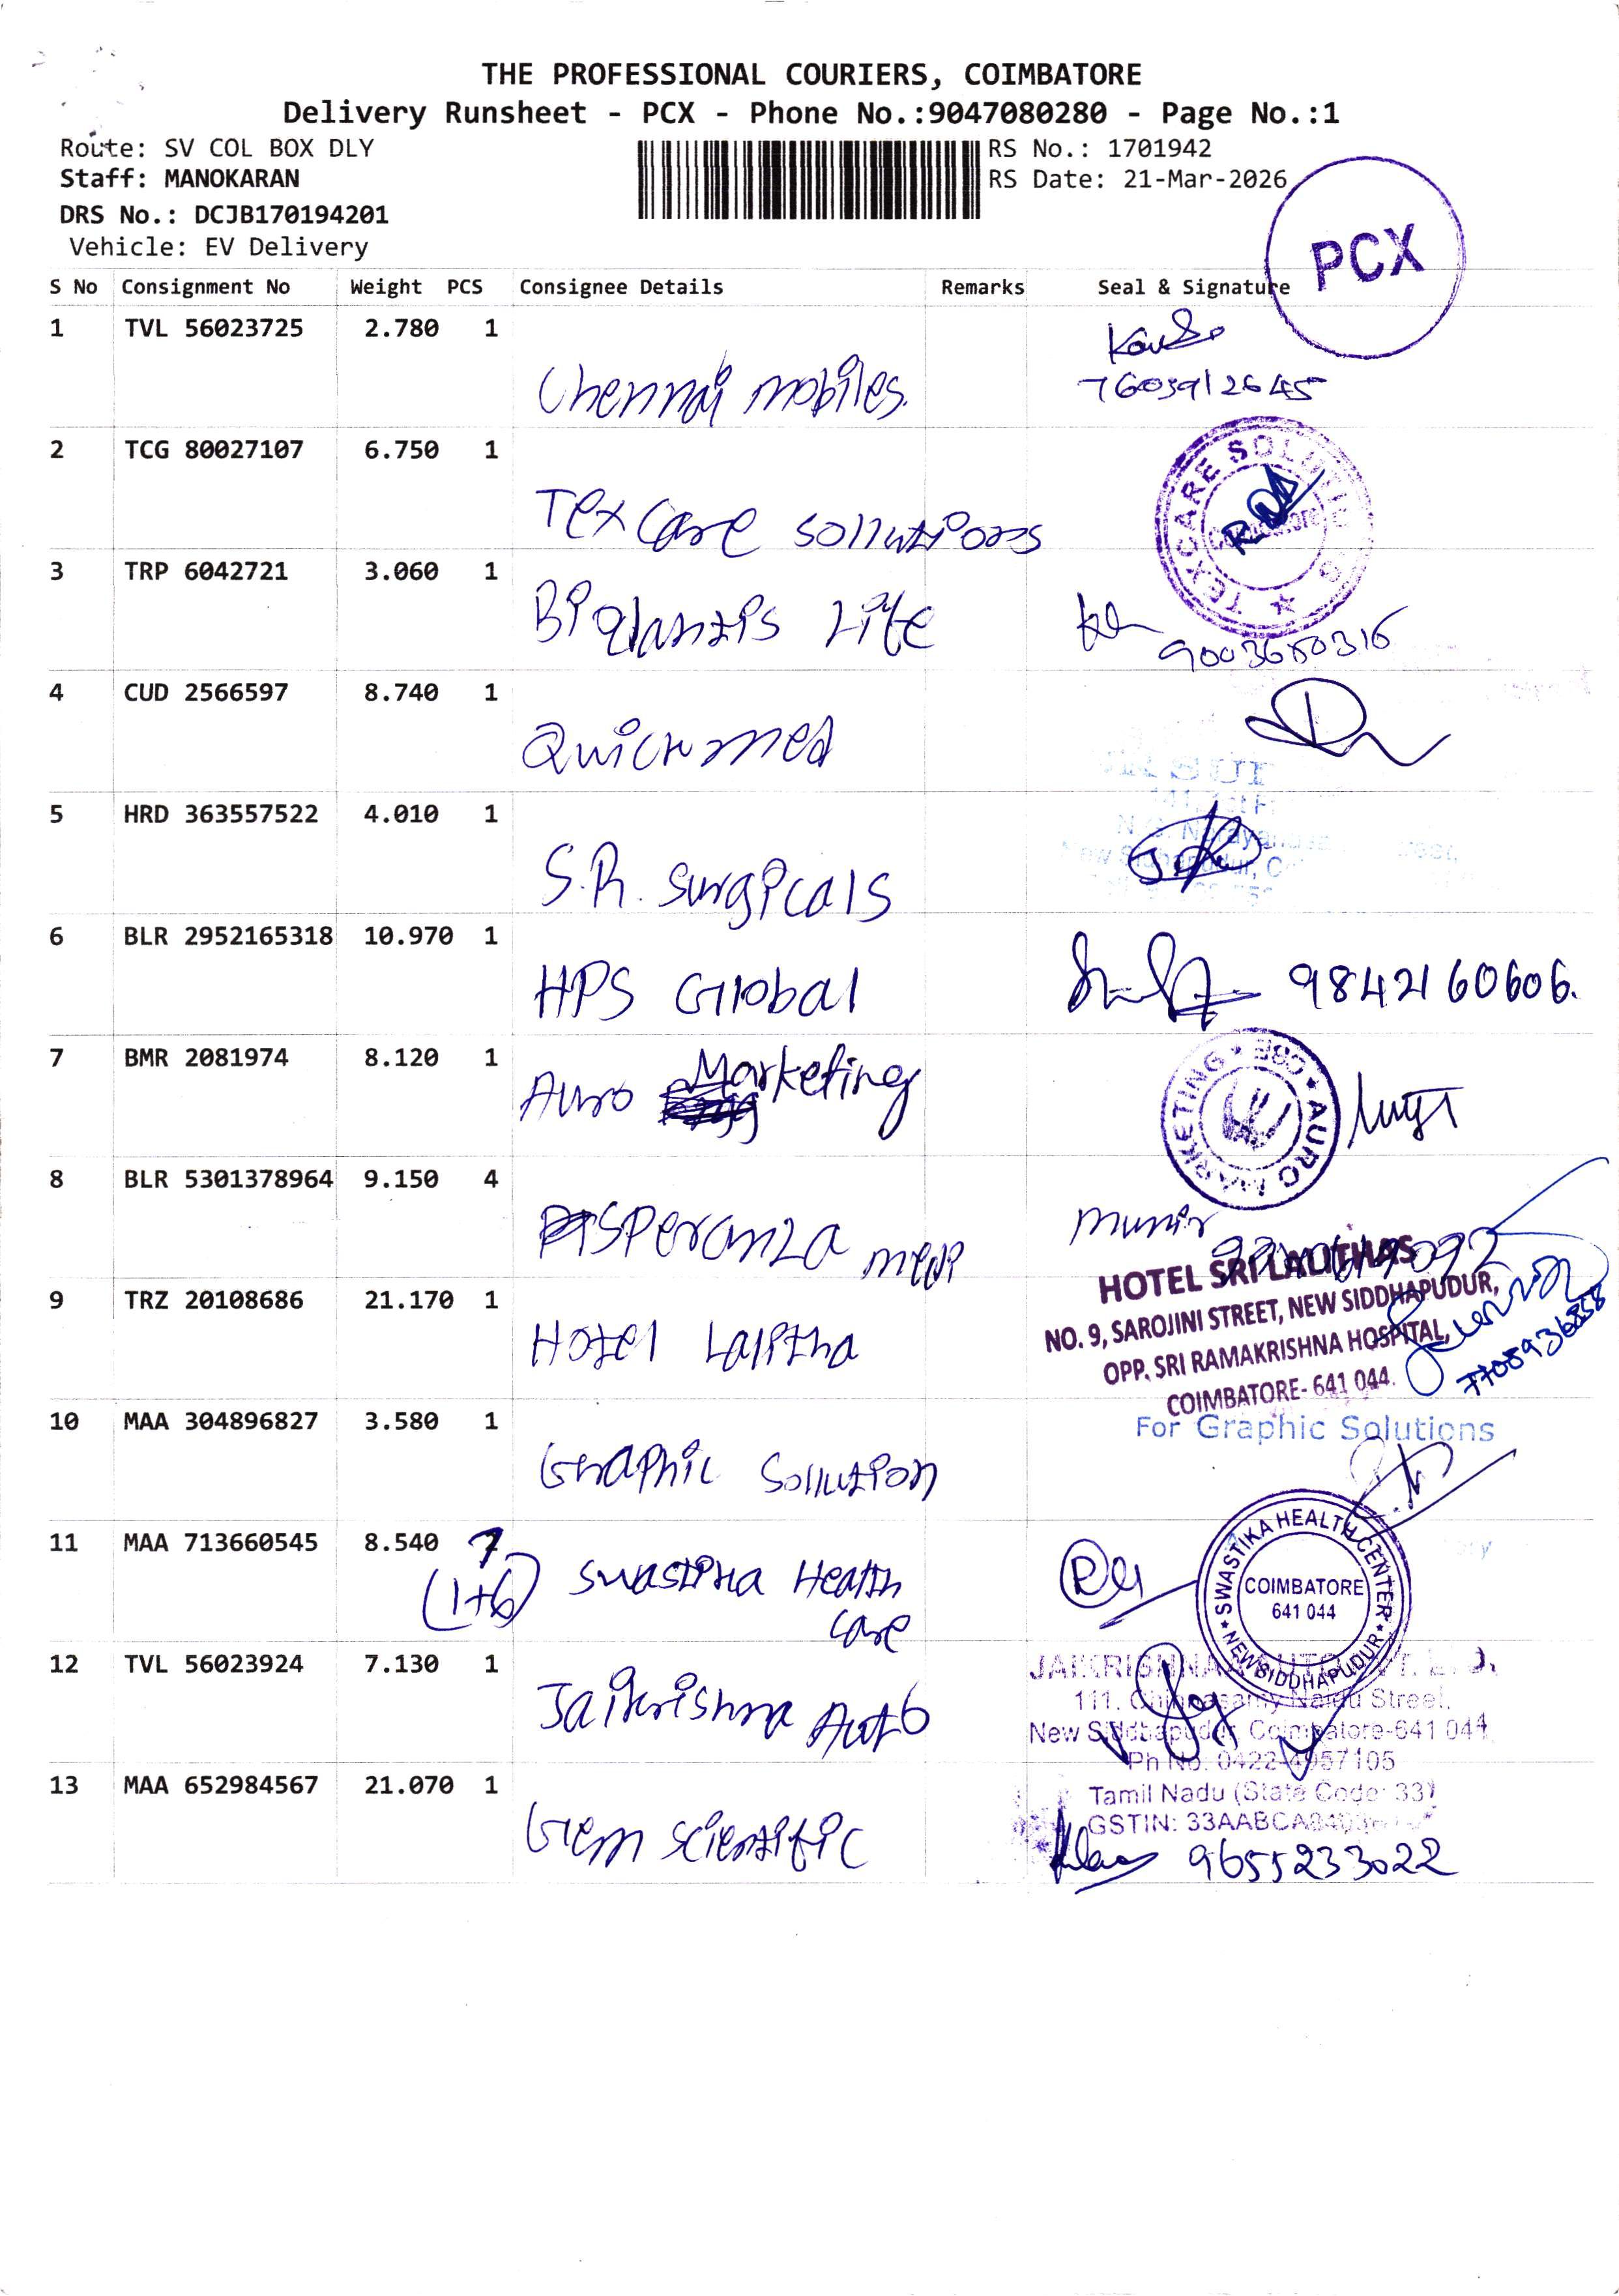 THE PROFESSIONAL COURIERS, COIMBATORE
Delivery Runsheet - PCX - Phone No.:9047080280 - Page No.:1
Route: SV COL BOX DLY
RS No.: 1701942
Staff: MANOKARAN
RS Date: 21-Mar-2026
DRS No.: DCJB170194201
Vehicle: EV Delivery
PCX
S No Consignment No Weight PCS Consignee Details Remarks Seal & Signature
1 TVL 56023725 2.780 1
Chennai mobiles.
7603912645
2 TCG 80027107 6.750 1
Tex Care sollutions
TEXCARE SOLUTIONS
3 TRP 6042721 3.060 1
Life
9003680316
4 CUD 2566597 8.740 1
Quickmed
5 HRD 363557522 4.010 1
S.R. surgicals
6 BLR 2952165318 10.970 1
HPS Global
9842160606.
7 BMR 2081974 8.120 1
Auro Marketing
AURO MARKETING CBE
8 BLR 5301378964 9.150 4
Speranza medi
munir
9 TRZ 20108686 21.170 1
Hotel Lalitha
HOTEL SRI LALITHAS
NO. 9, SAROJINI STREET, NEW SIDDHAPUDUR,
OPP. SRI RAMAKRISHNA HOSPITAL,
COIMBATORE- 641 044.
7708936858
10 MAA 304896827 3.580 1
Graphic Sollution
For Graphic Solutions
11 MAA 713660545 8.540 7
(1+6) Swastika Health
care
SWASTIKA HEALTH CENTER
COIMBATORE
641 044
NEW SIDDHAPUDUR
12 TVL 56023924 7.130 1
Jaikrishna Auto
JAIKRISHNAA AUTO PVT. LTD.
111, Chinnasamy Naidu Street,
New Siddhapudur, Coimbatore-641 044
Ph No: 0422-4957105
Tamil Nadu (State Code: 33)
GSTIN:
13 MAA 652984567 21.070 1
Gem scientific
9655233022